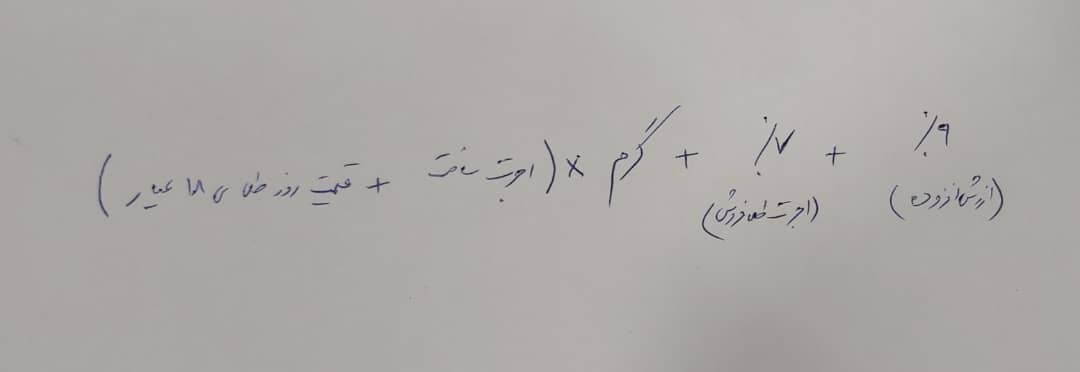 (قیمت روز طلای ۱۸ عیار + اجرت ساخت) × گرم + ۷٪ + ۹٪
(اجرت طلافروش) (ارزش افزوده)